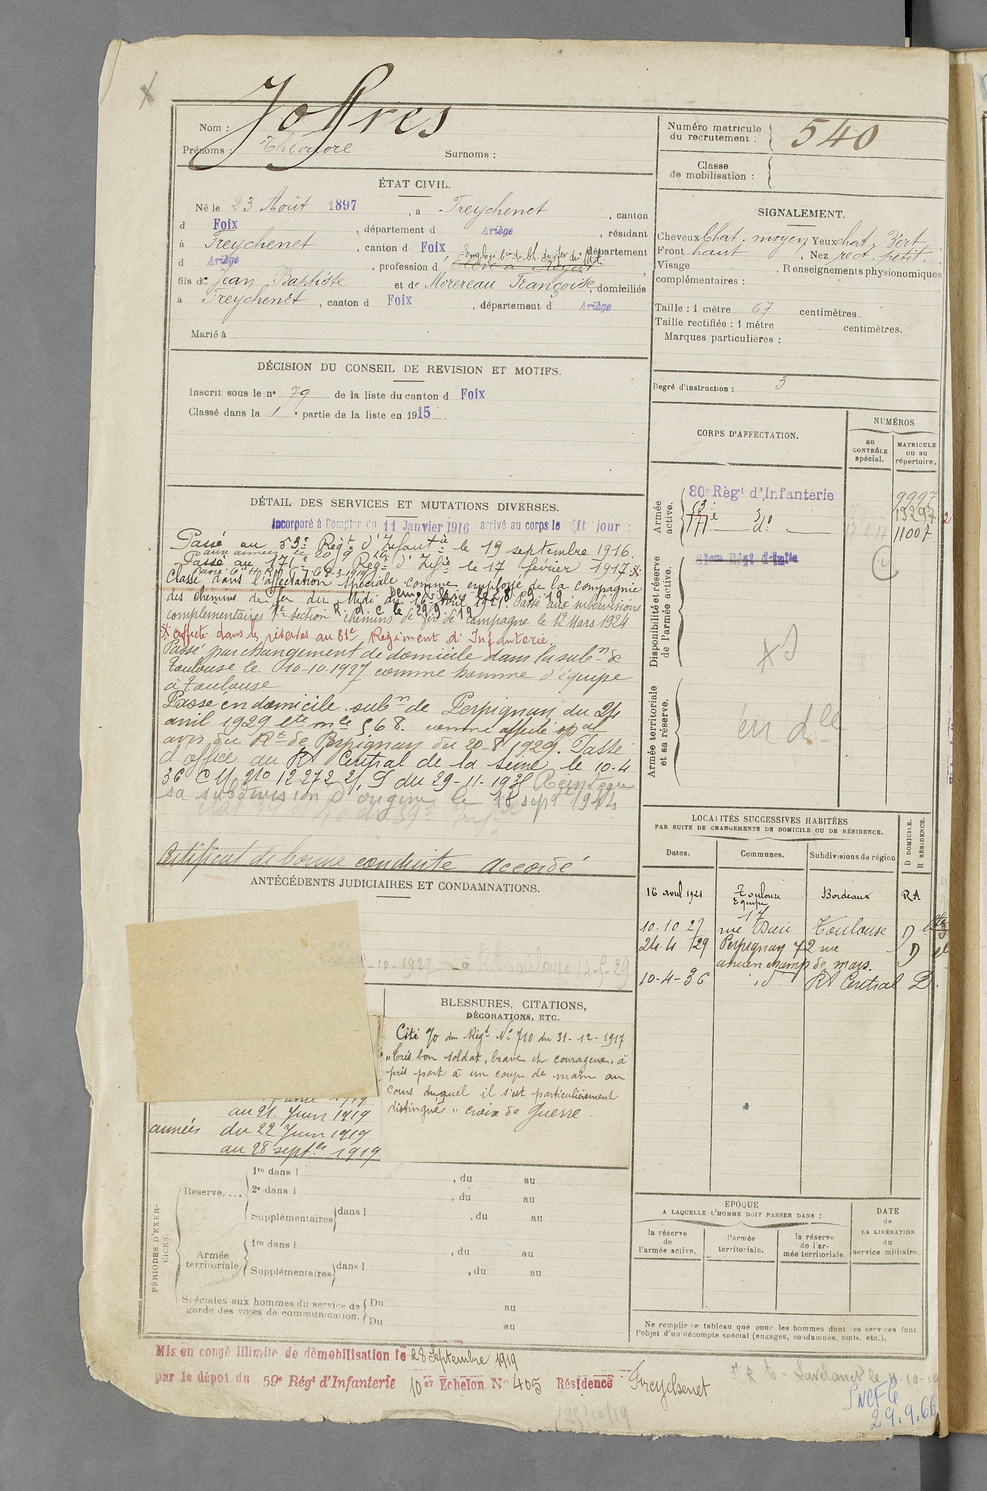 Nom : Joffres
Prénoms : Théodore Surnoms :
Numéro matricule du recrutement : 540
Classe de mobilisation :
ÉTAT CIVIL.
Né le 23 Août 1897, à Freychenet, canton
d Foix, département d Ariège, résidant
à Freychenet, canton d Foix, département
d Ariège, profession d
fils de Jean Baptiste et de Morereau Françoise, domiciliés
à Freychenet, canton d Foix, département d Ariège
Marié à
SIGNALEMENT.
Cheveux Chat. moyen Yeux chat. Vert
Front haut, Nez rect. petit
Visage, Renseignements physionomiques
complémentaires :
Taille : 1 mètre 67 centimètres.
Taille rectifiée : 1 mètre centimètres.
Marques particulières :
Degré d'instruction : 3
DÉCISION DU CONSEIL DE REVISION ET MOTIFS.
Inscrit sous le nº 79 de la liste du canton d Foix
Classé dans la 1e partie de la liste en 1915
DÉTAIL DES SERVICES ET MUTATIONS DIVERSES.
Incorporé à Compter du 11 Janvier 1916 arrivé au corps le dit jour :
Passé au 53e Régt d'Infautie le 19 septembre 1916.
Passé au 171e Régt d'Infie le 17 février 1917 x
Classé dans l'affectation spéciale comme employé de la compagnie
des chemins de fer du Midi du 16 Avril 1921. Passé aux subdivisions
complémentaires 1re section chemins de fer de campagne le 12 Mars 1924
x affecté dans les réserves au 81e Régiment d'Infanterie.
Passé par changement de domicile dans la subon de
Toulouse le 10-10-1927 comme homme d'équipe
à Toulouse
Passé en domicile subon de Perpignan du 24
avril 1929 comme affecté spal
avis du Rt de Perpignan du 20-8-1929. Passé
d'office au Rt Central de la Seine le 10-4
36 C M no 12272 du 29-11-1938 Réintègre
sa subdivision d'origine le 18 sept 1944
Certificat de bonne conduite Accordé
ANTÉCÉDENTS JUDICIAIRES ET CONDAMNATIONS.
BLESSURES, CITATIONS,
DÉCORATIONS, ETC.
Cité à l'o du Régt No 710 du 31-12-1917
"très bon soldat, brave et courageux, a
pris part à un coup de main au
cours duquel il s'est particulièrement
distingué" croix de Guerre.
au 21 Juin 1919
années du 22 Juin 1919
au 28 septbre 1919
CORPS D'AFFECTATION.
NUMÉROS
au CONTRÔLE spécial.
MATRICULE ou au répertoire.
Armée active.
80e Régt d'Infanterie 9997
53e do 13297
171e do 11007
Disponibilité et réserve de l'armée active.
81eme Régt d'Infie
Armée territoriale et sa réserve.
en dlle
LOCALITÉS SUCCESSIVES HABITÉES
PAR SUITE DE CHANGEMENTS DE DOMICILE OU DE RÉSIDENCE.
Dates. Communes. Subdivisions de région D DOMICILE. R RÉSIDENCE.
16 avril 1921 Bordeaux RA
10.10.27 17 rue Toulouse D
24.4.29 Perpignan 72 rue D
ancien champ de mars.
10-4-36 id Rt Central D.
PÉRIODES D'EXERCICES.
Réserve.... 1re dans l , du au
2e dans l , du au
Supplémentaires dans l , du au
Armée territoriale 1re dans l , du au
Supplémentaires dans l , du au
Spéciales aux hommes du service de garde des voies de communication. Du au
Du au
EPOQUE
A LAQUELLE L'HOMME DOIT PASSER DANS :
la réserve de l'armée active.
l'armée territoriale.
la réserve de l'armée territoriale.
DATE de LA LIBÉRATION du service militaire.
Ne remplir ce tableau que pour les hommes dont les services font
l'objet d'un décompte spécial (engagés, condamnés, omis, etc.).
Mis en congé illimité de démobilisation le 28 Septembre 1919
par le dépôt du 59e Régt d'Infanterie 10e Echelon No 405 Résidence Freychenet
SNCF le
29.9.66